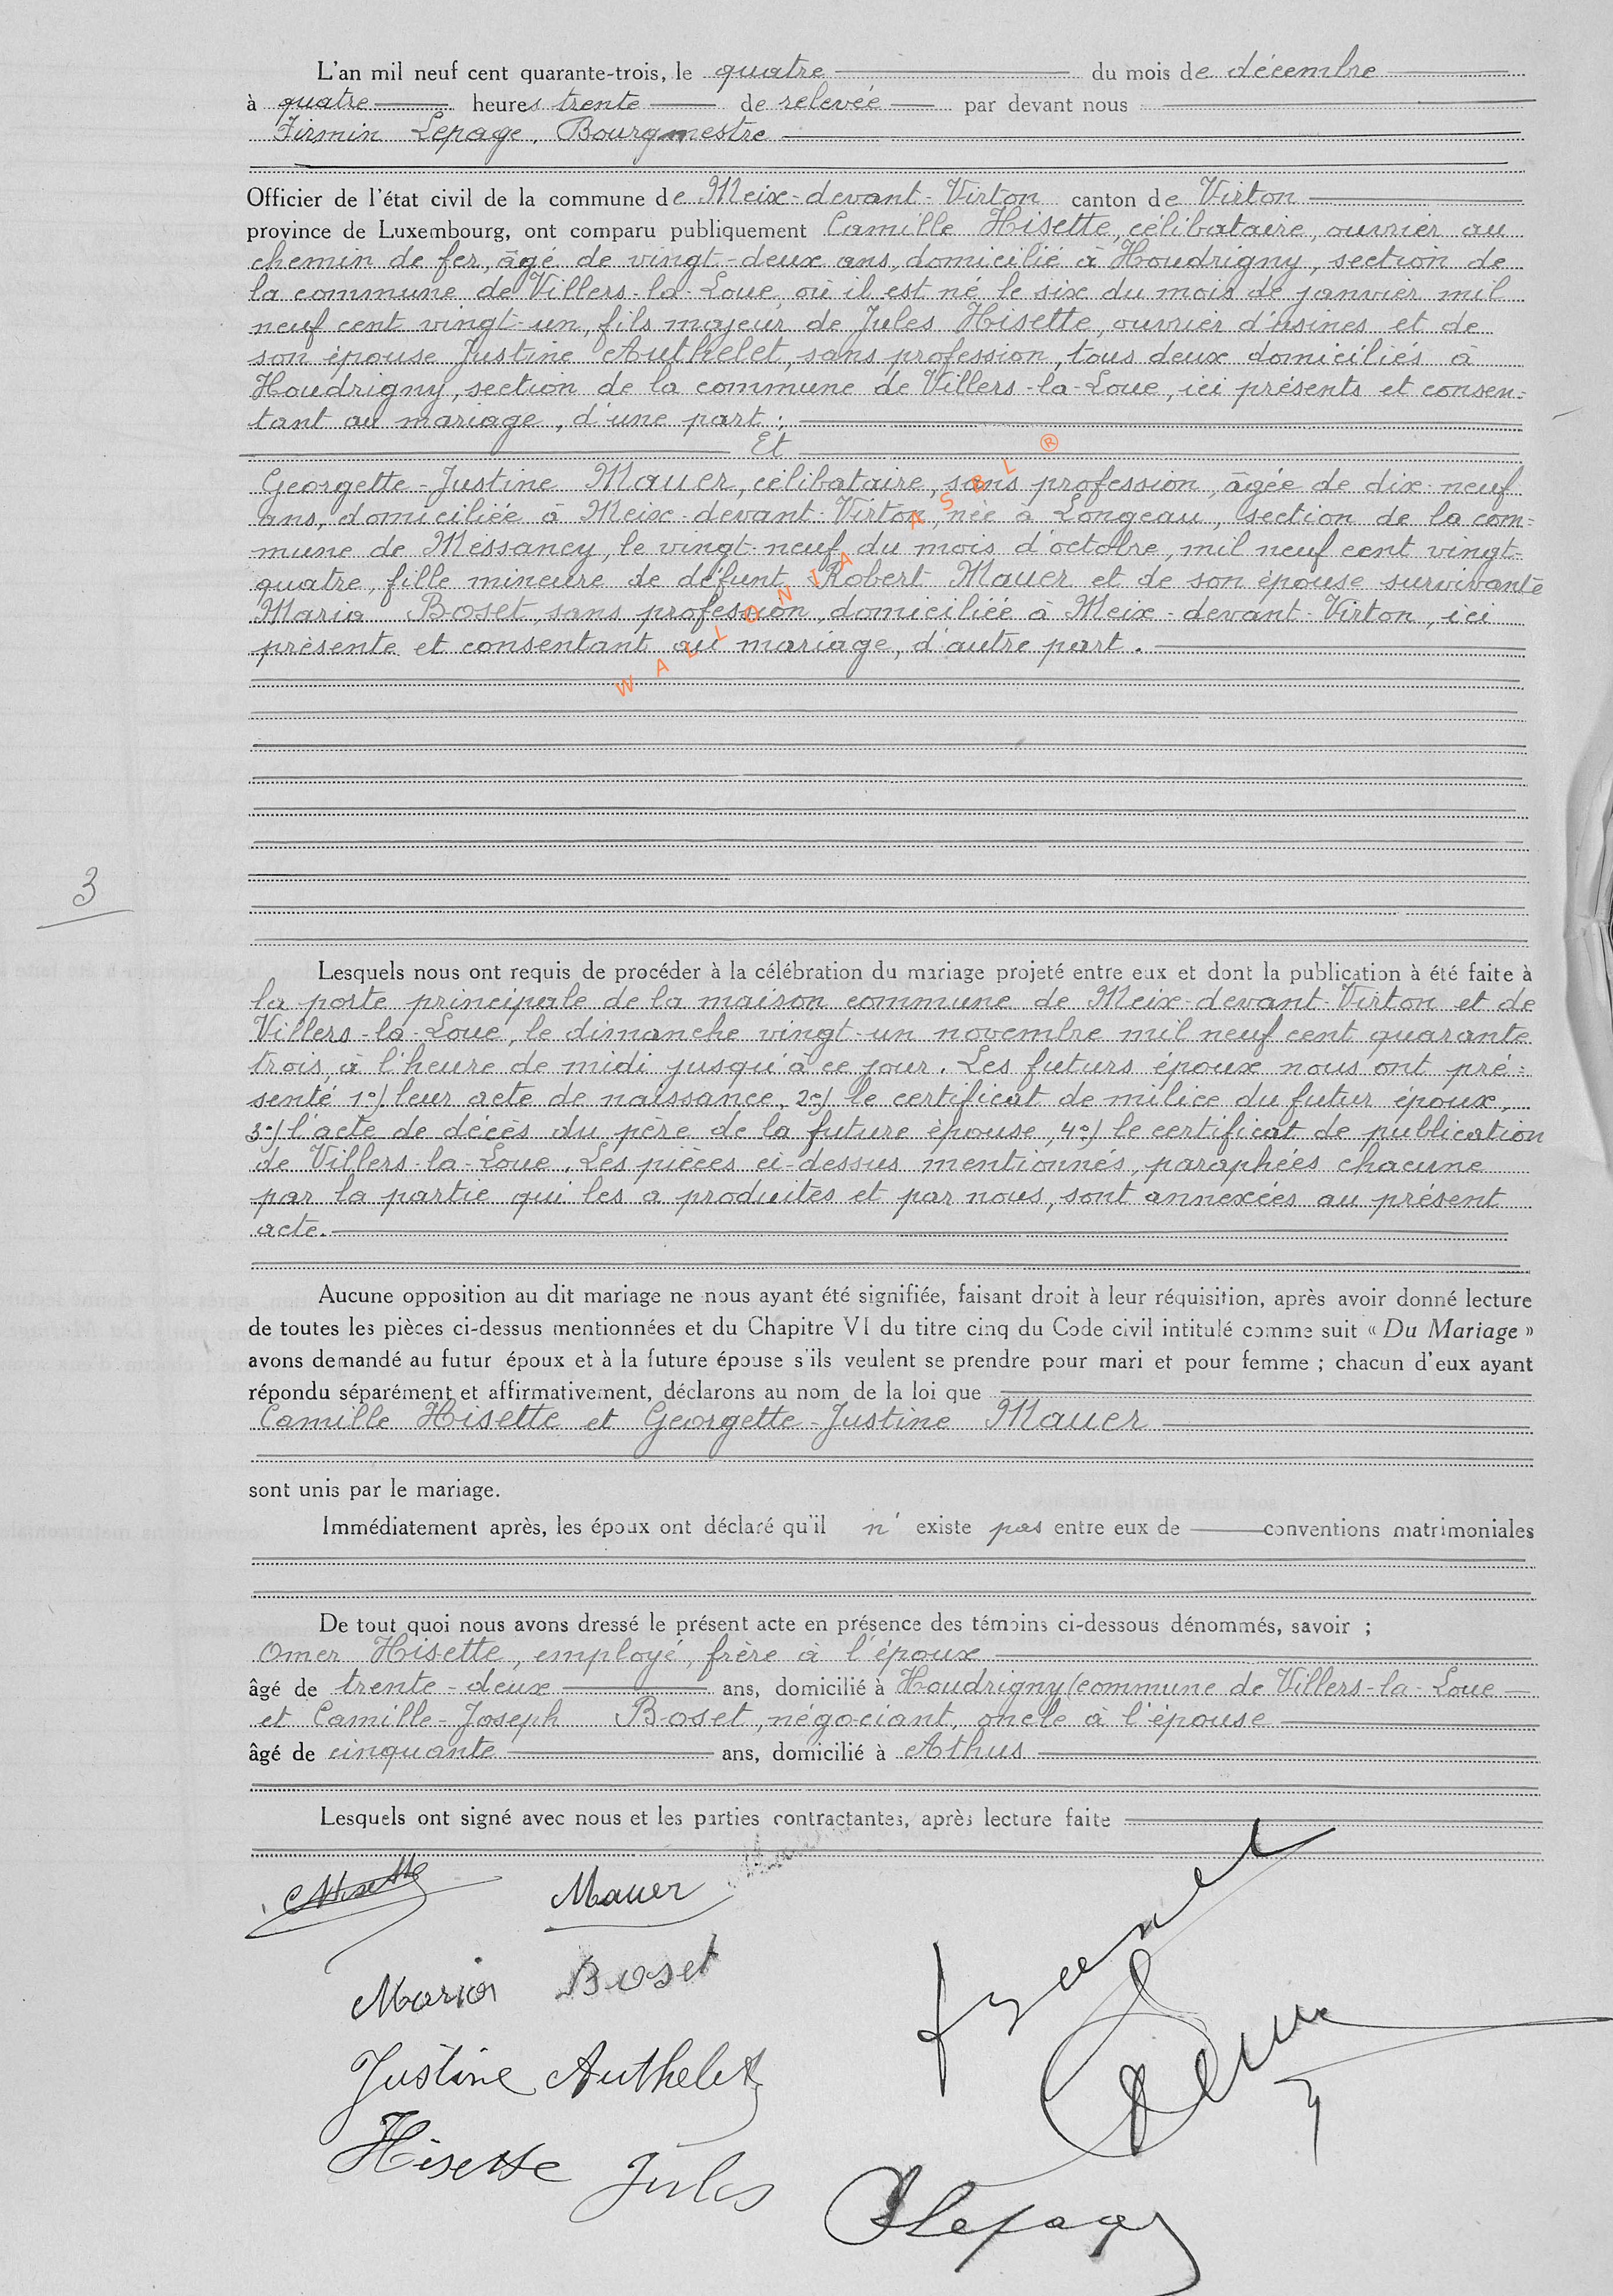 L'an mil neuf cent quarante-trois, le quatre du mois de décembre
à quatre heures trente de relevée par devant nous
Firmin Lepage, Bourgmestre
Officier de l'état civil de la commune de Meix-devant-Virton canton de Virton
province de Luxembourg, ont comparu publiquement Camille Hisette, célibataire, ouvrier au
chemin de fer, âgé de vingt-deux ans, domicilié à Houdrigny, section de
la commune de Villers-la-Loue, où il est né le six du mois de janvier mil
neuf cent vingt-un, fils majeur de Jules Hisette, ouvrier d'usines et de
son épouse Justine Authelet, sans profession, tous deux domiciliés à
Houdrigny, section de la commune de Villers-la-Loue, ici présents et consen-
tant au mariage, d'une part;
Et
Georgette-Justine Mauer, célibataire, sans profession, âgée de dix-neuf
ans, domiciliée à Meix-devant-Virton, née à Longeau, section de la com-
mune de Messancy, le vingt-neuf du mois d'octobre, mil neuf cent vingt-
quatre, fille mineure de défunt Robert Mauer et de son épouse survivante
Maria Boset, sans profession, domiciliée à Meix-devant-Virton, ici
présente et consentant au mariage, d'autre part.
WALLONIA ASBL ®
3
Lesquels nous ont requis de procéder à la célébration du mariage projeté entre eux et dont la publication à été faite à
la porte principale de la maison commune de Meix-devant-Virton et de
Villers-la-Loue, le dimanche vingt-un novembre mil neuf cent quarante
trois, à l'heure de midi jusqu'à ce jour. Les futurs époux nous ont pré-
senté 1°) leur acte de naissance, 2°) le certificat de milice du futur époux,
3°) l'acte de décès du père de la future épouse, 4°) le certificat de publication
de Villers-la-Loue. Les pièces ci-dessus mentionnés, paraphées chacune
par la partie qui les a produites et par nous, sont annexées au présent
acte.
Aucune opposition au dit mariage ne nous ayant été signifiée, faisant droit à leur réquisition, après avoir donné lecture
de toutes les pièces ci-dessus mentionnées et du Chapitre VI du titre cinq du Code civil intitulé comme suit « Du Mariage »
avons demandé au futur époux et à la future épouse s'ils veulent se prendre pour mari et pour femme ; chacun d'eux ayant
répondu séparément et affirmativement, déclarons au nom de la loi que
Camille Hisette et Georgette-Justine Mauer
sont unis par le mariage.
Immédiatement après, les époux ont déclaré qu'il n' existe pas entre eux de conventions matrimoniales
De tout quoi nous avons dressé le présent acte en présence des témoins ci-dessous dénommés, savoir ;
Omer Hisette, employé, frère à l'époux
âgé de trente-deux ans, domicilié à Houdrigny (commune de Villers-la-Loue
et Camille-Joseph Boset, négociant, oncle à l'épouse
âgé de cinquante ans, domicilié à Athus
Lesquels ont signé avec nous et les parties contractantes, après lecture faite
CHisette Mauer
Maria Boset
Justine Authelet
Hisette Jules
Lepage